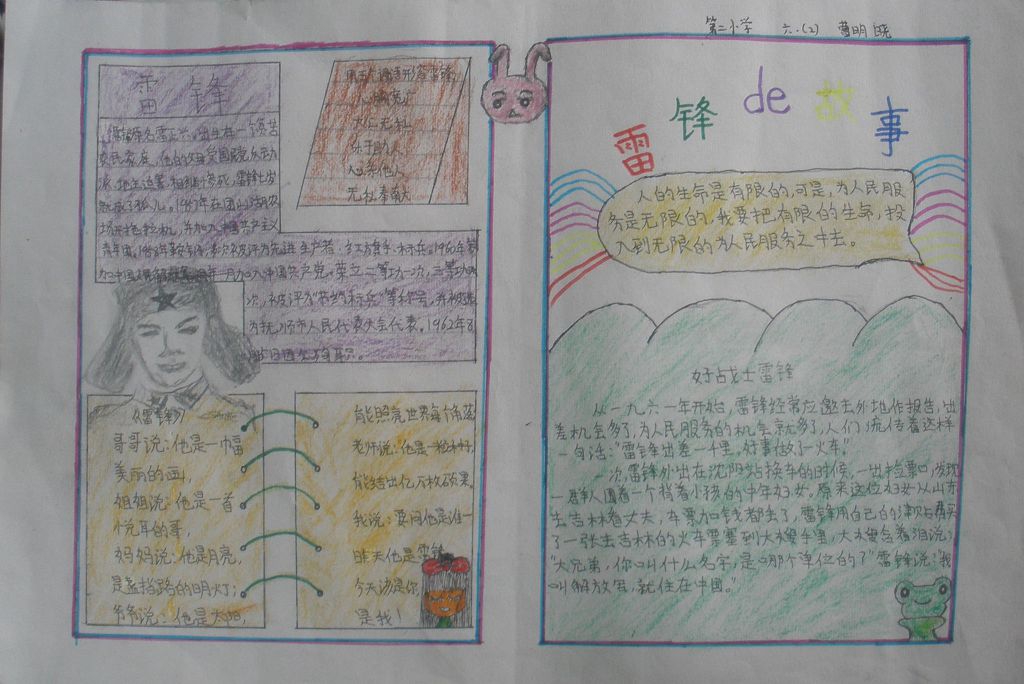 第二小学 六.(2) 曹明晓
雷锋
出生在一个贫苦
农民家庭
就成了孤儿。
加中国共产党。荣立二等功一次,三等功
次,被评为"节约标兵"等称号,并被选
为抚顺市人民代表大会代表。1962年8
用五个词语形容雷锋
心胸宽广
大公无私
乐于助人
心系他人
无私奉献
《雷锋》
哥哥说:他是一幅
美丽的画,
姐姐说:他是一首
悦耳的歌,
妈妈说:他是月亮,
是盏挡路的明灯;
爷爷说:他是太阳,
能照亮世界每个角落
老师说:他是一粒种籽,
能结出亿万枚硕果。
我说:要问他是谁—
昨天他是雷锋
今天该是你
是我!
雷锋de故事
人的生命是有限的,可是,为人民服
务是无限的,我要把有限的生命,投
入到无限的为人民服务之中去。
好战士雷锋
从一九六一年开始,雷锋经常应邀去外地作报告,出
差机会多了,为人民服务的机会就多了,人们流传着这样
一句话:"雷锋出差一千里,好事做了一火车"
次,雷锋外出在沈阳站换车的时候,一出检票口,发现
一群人围着一个背着小孩的中年妇女。原来这位妇女从山东
去吉林看丈夫,车票和钱都丢了,雷锋用自己的津贴费买
了一张去吉林的火车票塞到大嫂手里,大嫂含着泪说:
"大兄弟,你叫什么名字,是哪个单位的?"雷锋说:"我
叫解放军,就住在中国。"